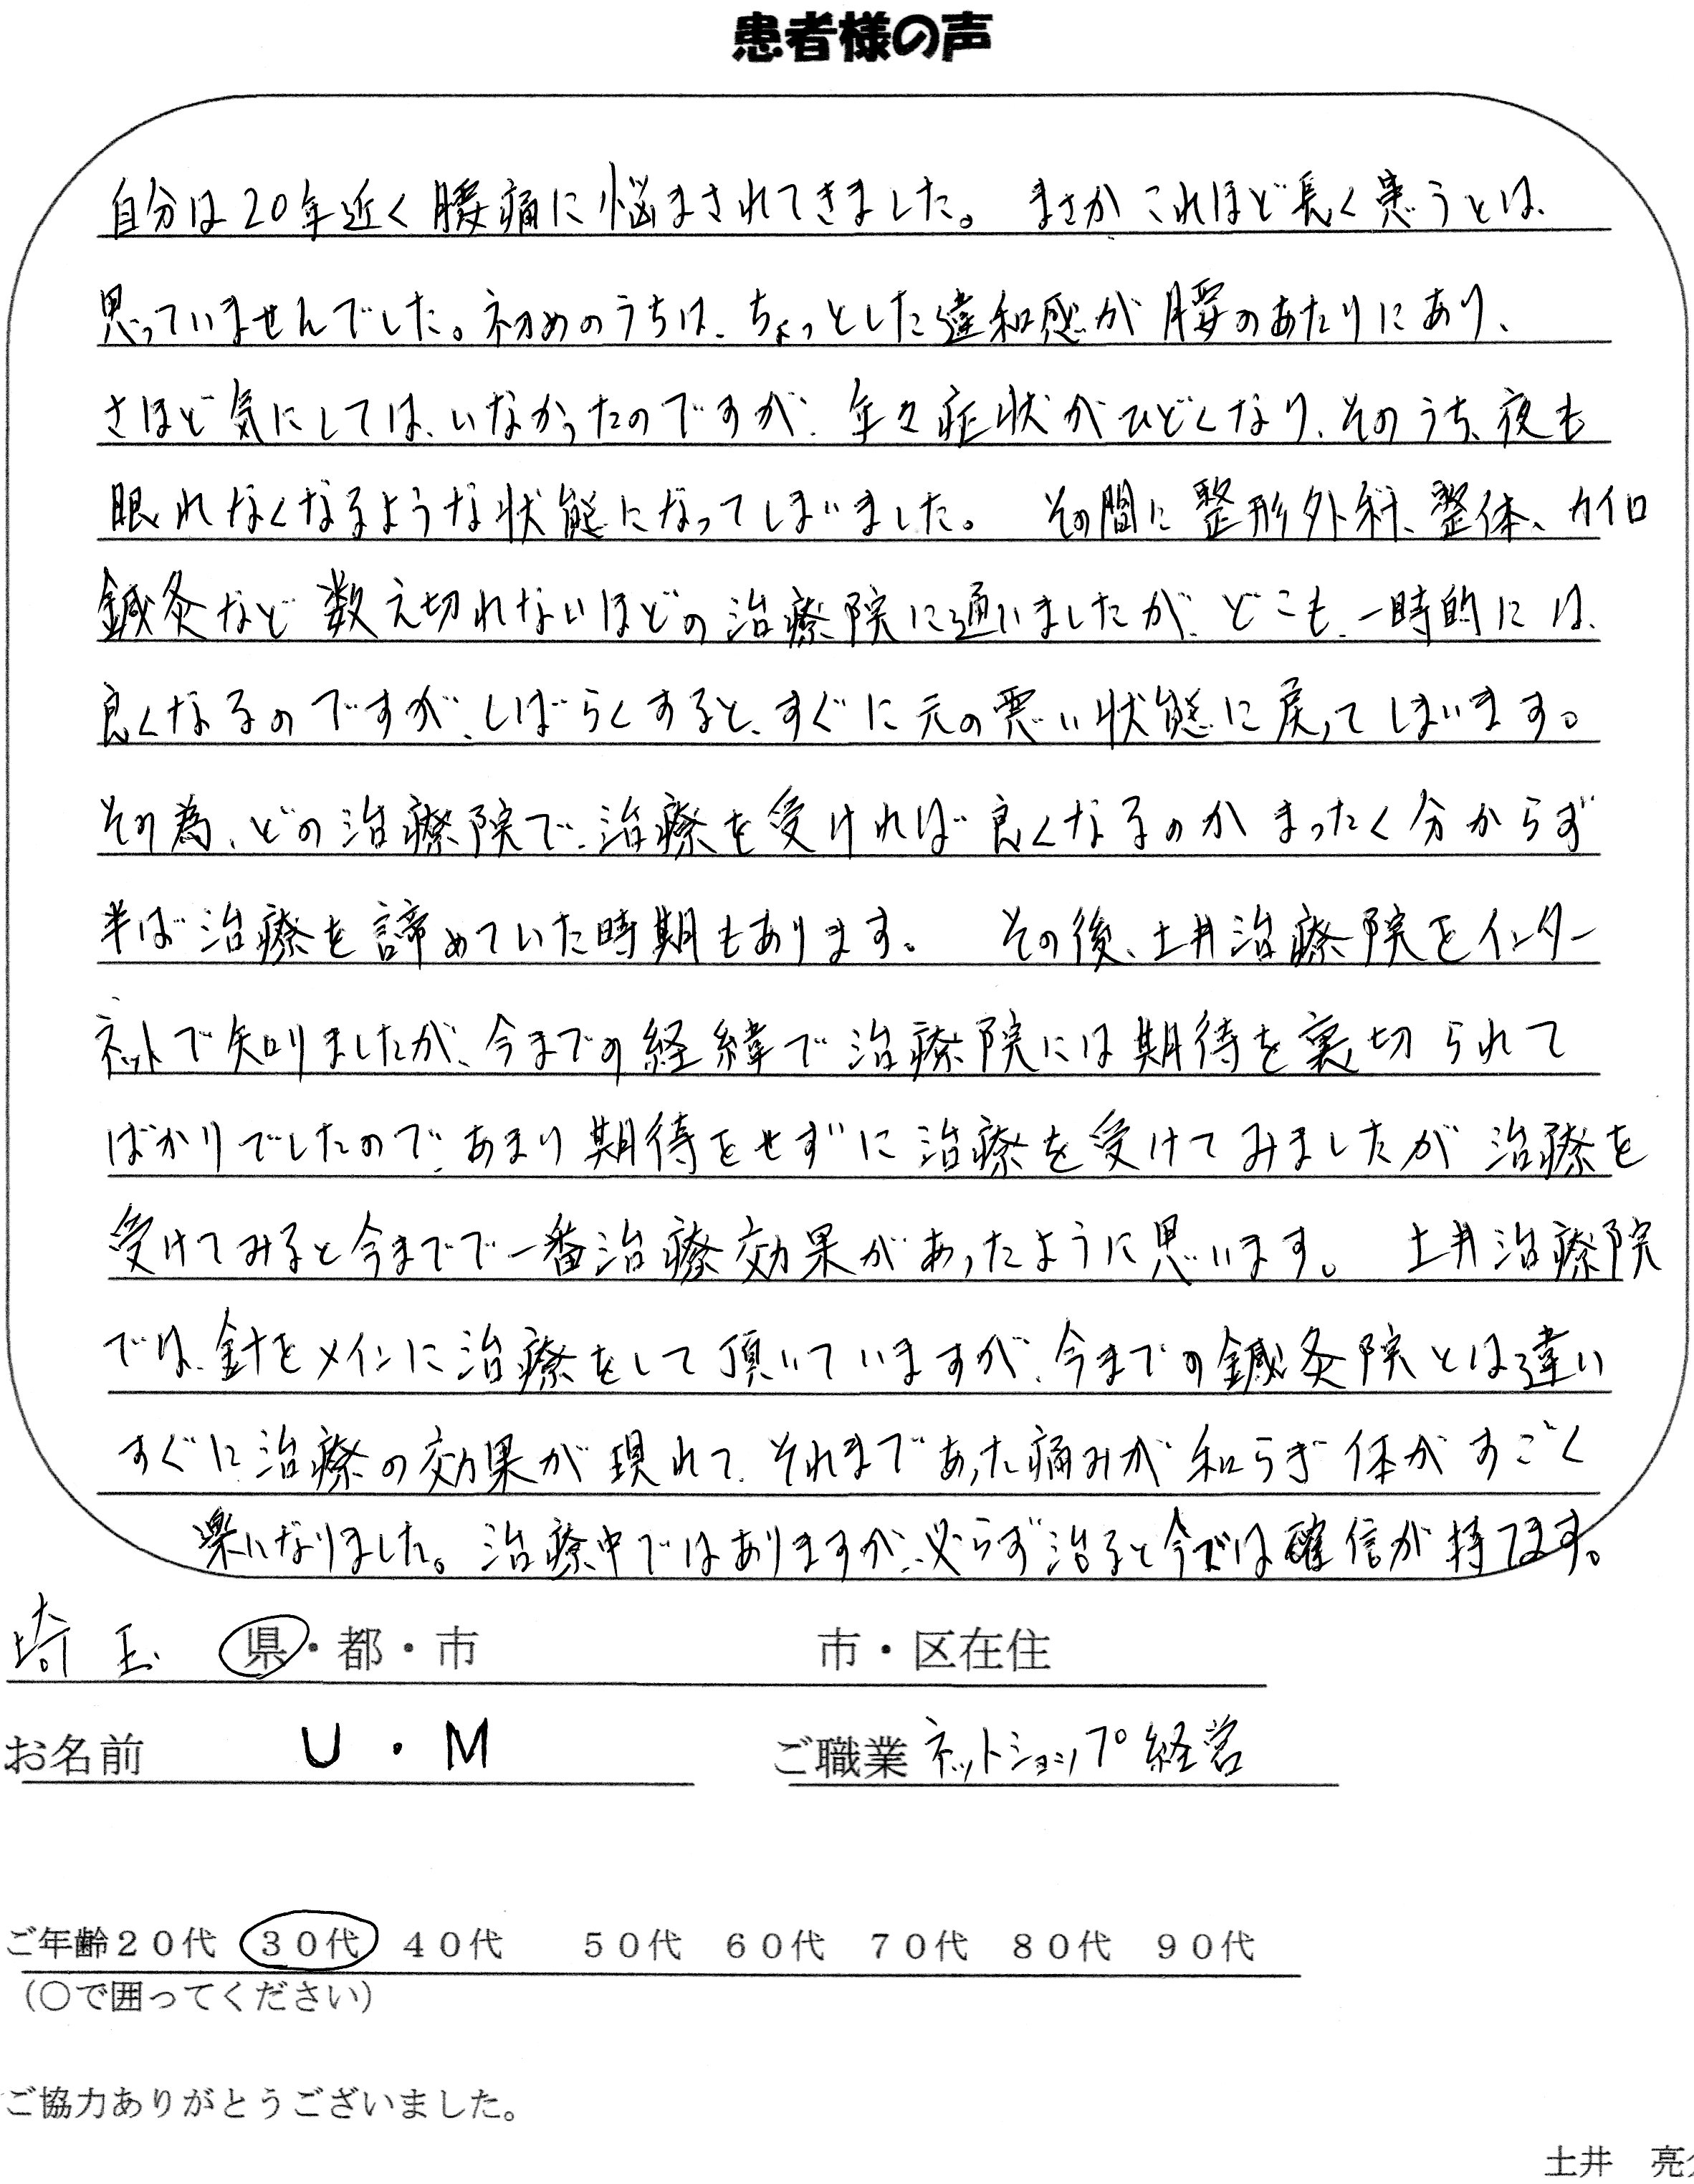 患者様の声
自分は20年近く腰痛に悩まされてきました。 まさかこれほど長く患うとは、
思っていませんでした。初めのうちは、ちょっとした違和感が腰のあたりにあり、
さほど気にしては、いなかったのですが、年々症状がひどくなり、そのうち、夜も
眠れなくなるような状態になってしまいました。 その間に整形外科、整体、カイロ
鍼灸など数え切れないほどの治療院に通いましたが、どこも、一時的には、
良くなるのですが、しばらくすると、すぐに元の悪い状態に戻ってしまいます。
その為、どの治療院で、治療を受ければ良くなるのかまったく分からず
半ば治療を諦めていた時期もあります。 その後、土井治療院をインター
ネットで知りましたが、今までの経緯で治療院には期待を裏切られて
ばかりでしたので、あまり期待をせずに治療を受けてみましたが治療を
受けてみると今までで一番治療効果があったように思います。 土井治療院
では、針をメインに治療をして頂いていますが、今までの鍼灸院とは違い
すぐに治療の効果が現れて、それまであった痛みが和らぎ体がすごく
楽になりました。治療中ではありますが、必らず治ると今では確信が持てます。
埼玉 県・都・市 市・区在住
お名前 U・M ご職業 ネットショップ経営
ご年齢20代 30代 40代 50代 60代 70代 80代 90代
（○で囲ってください）
ご協力ありがとうございました。
土井 亮